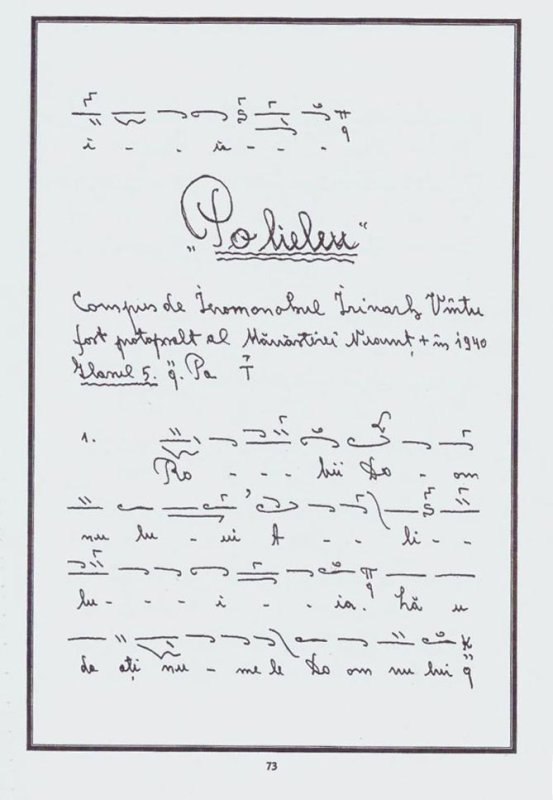 i - - ia - - -
„Polieleu“
Compus de Ieromonahul Irinarh Vîntu
fost protopsalt al Mănăstirei Neamț + în 1940
Glasul 5. Pa
1.
Ro - - - bii Do - om
nu lu - ui A - - li - -
lu - - - i - - ia. Lă u
da ați nu - me le Do om nu lui
73